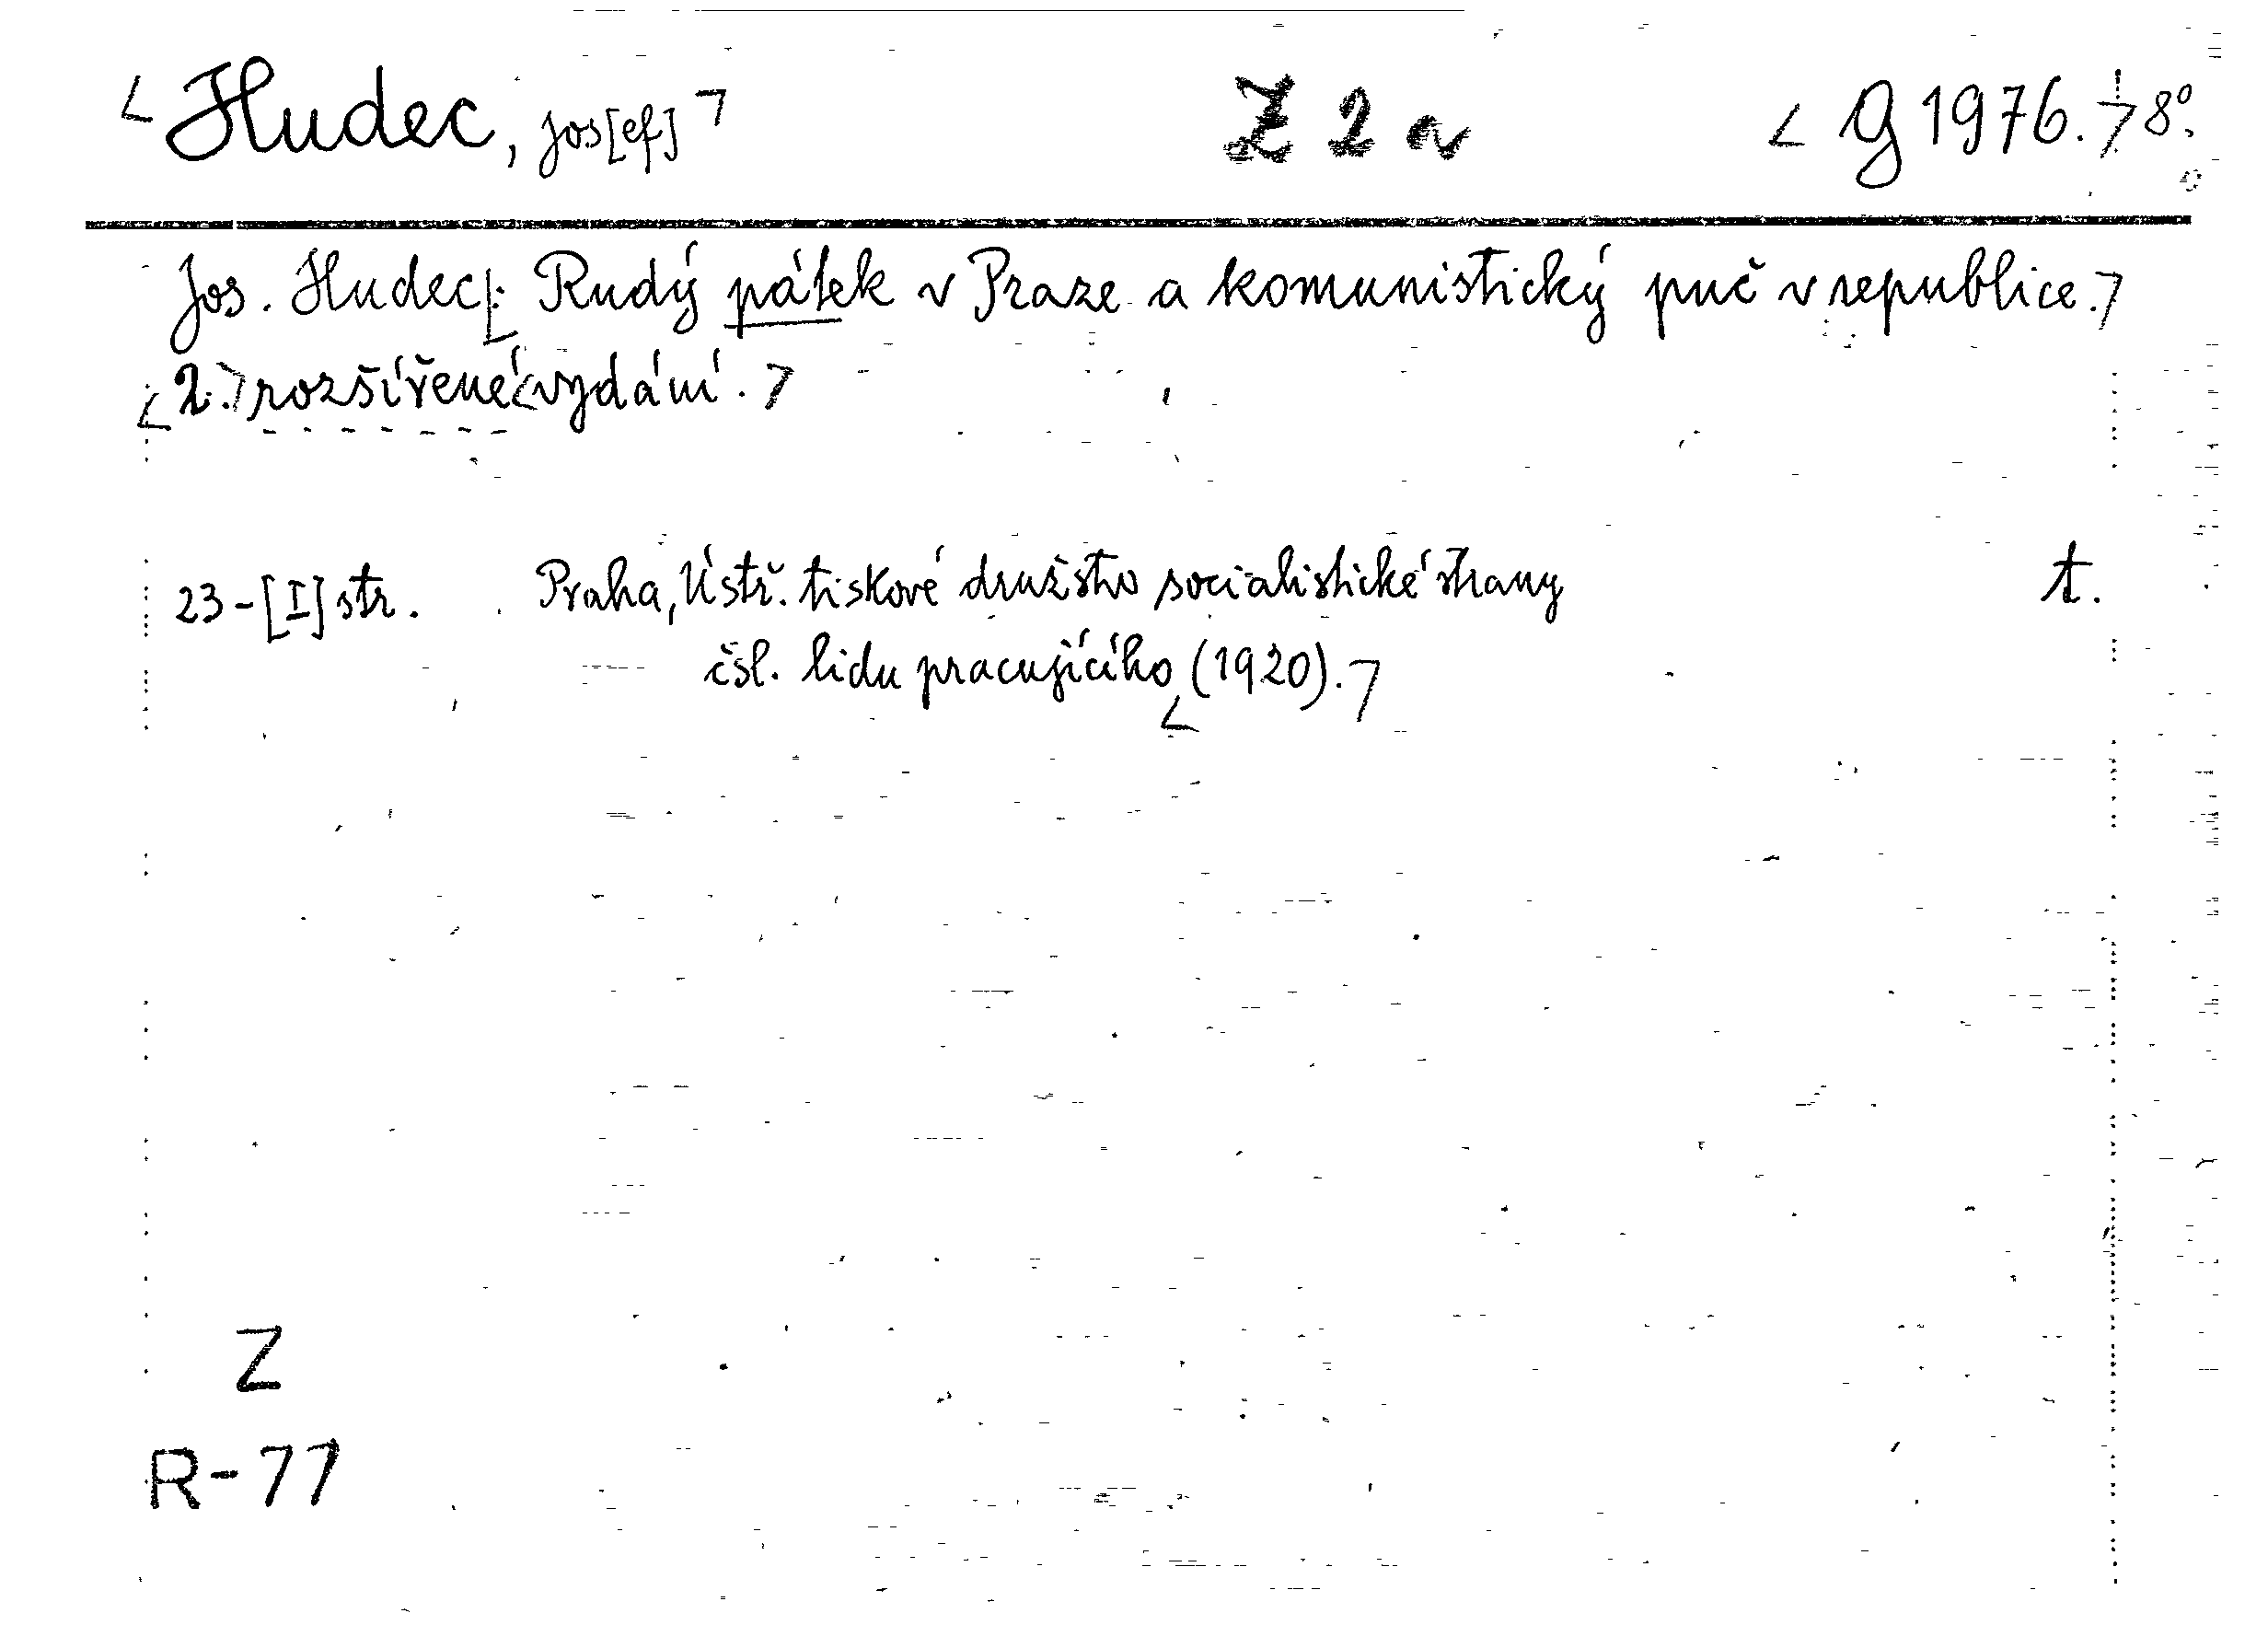 Hudec, Jos[ef] Z 2 a g 1976. 8°.
Jos. Hudec: Rudý pátek v Praze a komunistický puč v republice.
2. rozšířené vydání.
23-[I] str. Praha, Ústř. tiskové družstvo socialistické strany t.
čsl. lidu pracujícího (1920).
Z
R-77